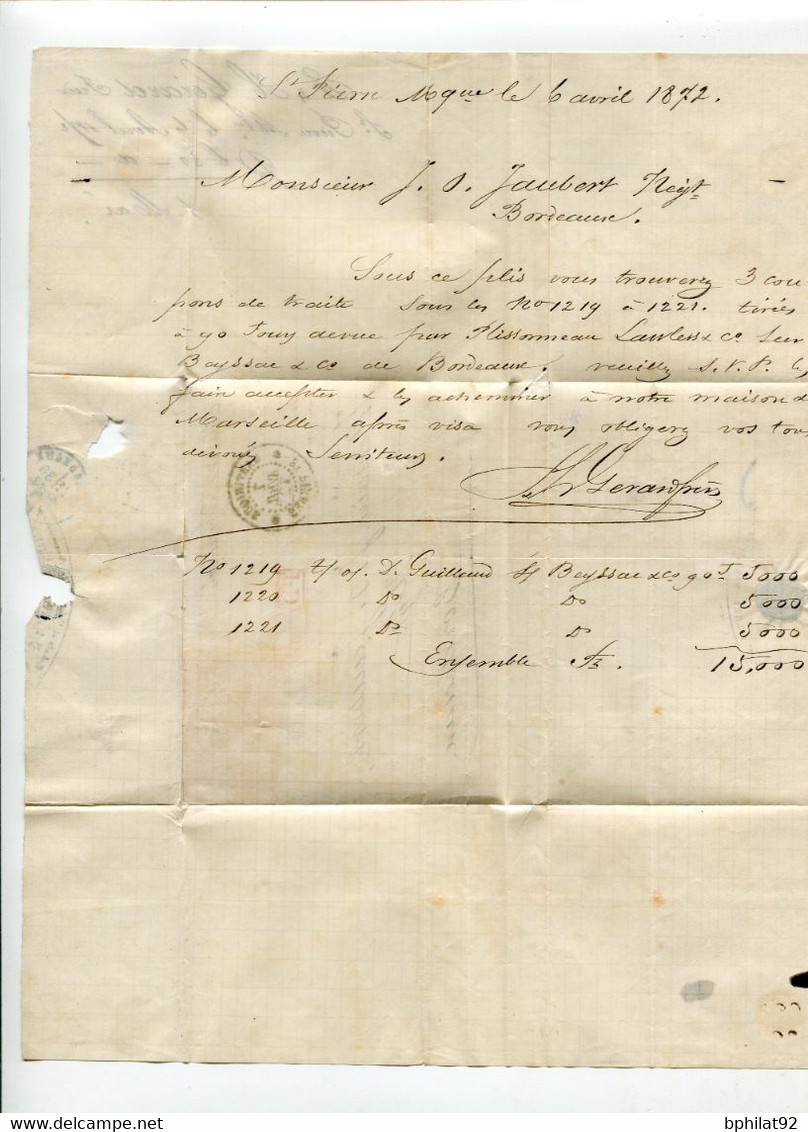 St Pierre Mque le 6 avril 1872.
Monsieur J. O. Jaubert Negt
Bordeaux.
Sous ce plis vous trouverez 3 cou
pons de traite sous les No 1219 à 1221. tirées
à 90 Jours de vue par Plissonneau Lawless & Co Sur
Beyssac & Co de Bordeaux. veuillez S.V.P. les
faire accepter & les acheminer à notre maison d
Marseille après visa vous obligerez vos tou
dévoués Serviteurs.
No 1219 D. Guilland s/ Beyssac & Co 90 J 5000
1220 Do Do 5000
1221 Do Do 5000
Ensemble Fs. 15,000
bphilat92